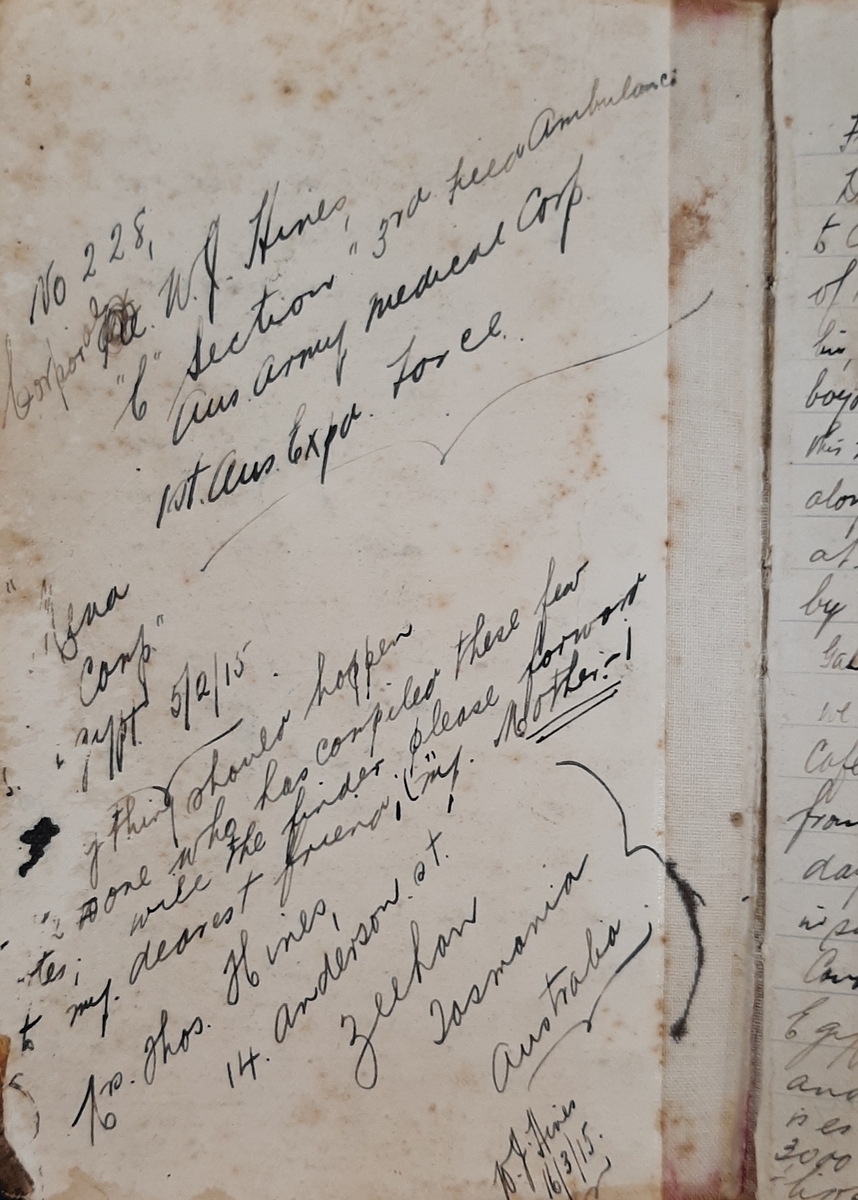 No 228,
Corporal W.J. Hines,
"C" Section" 3rd Field Ambulance
Aus. Army Medical Corp.
1st. Aus. Expd. Force.
Camp"
5/2/15.
should happen
one who has compiled these few
will the finder please forward
to my dearest friend, (my. Mother:-!
Thos. Hines,
14. Anderson. st.
Zeehan
Tasmania
Australia.
W.J. Hines
16/3/15.
to
of
boy
this
at
by
we
Cafe
from
day
and
3000